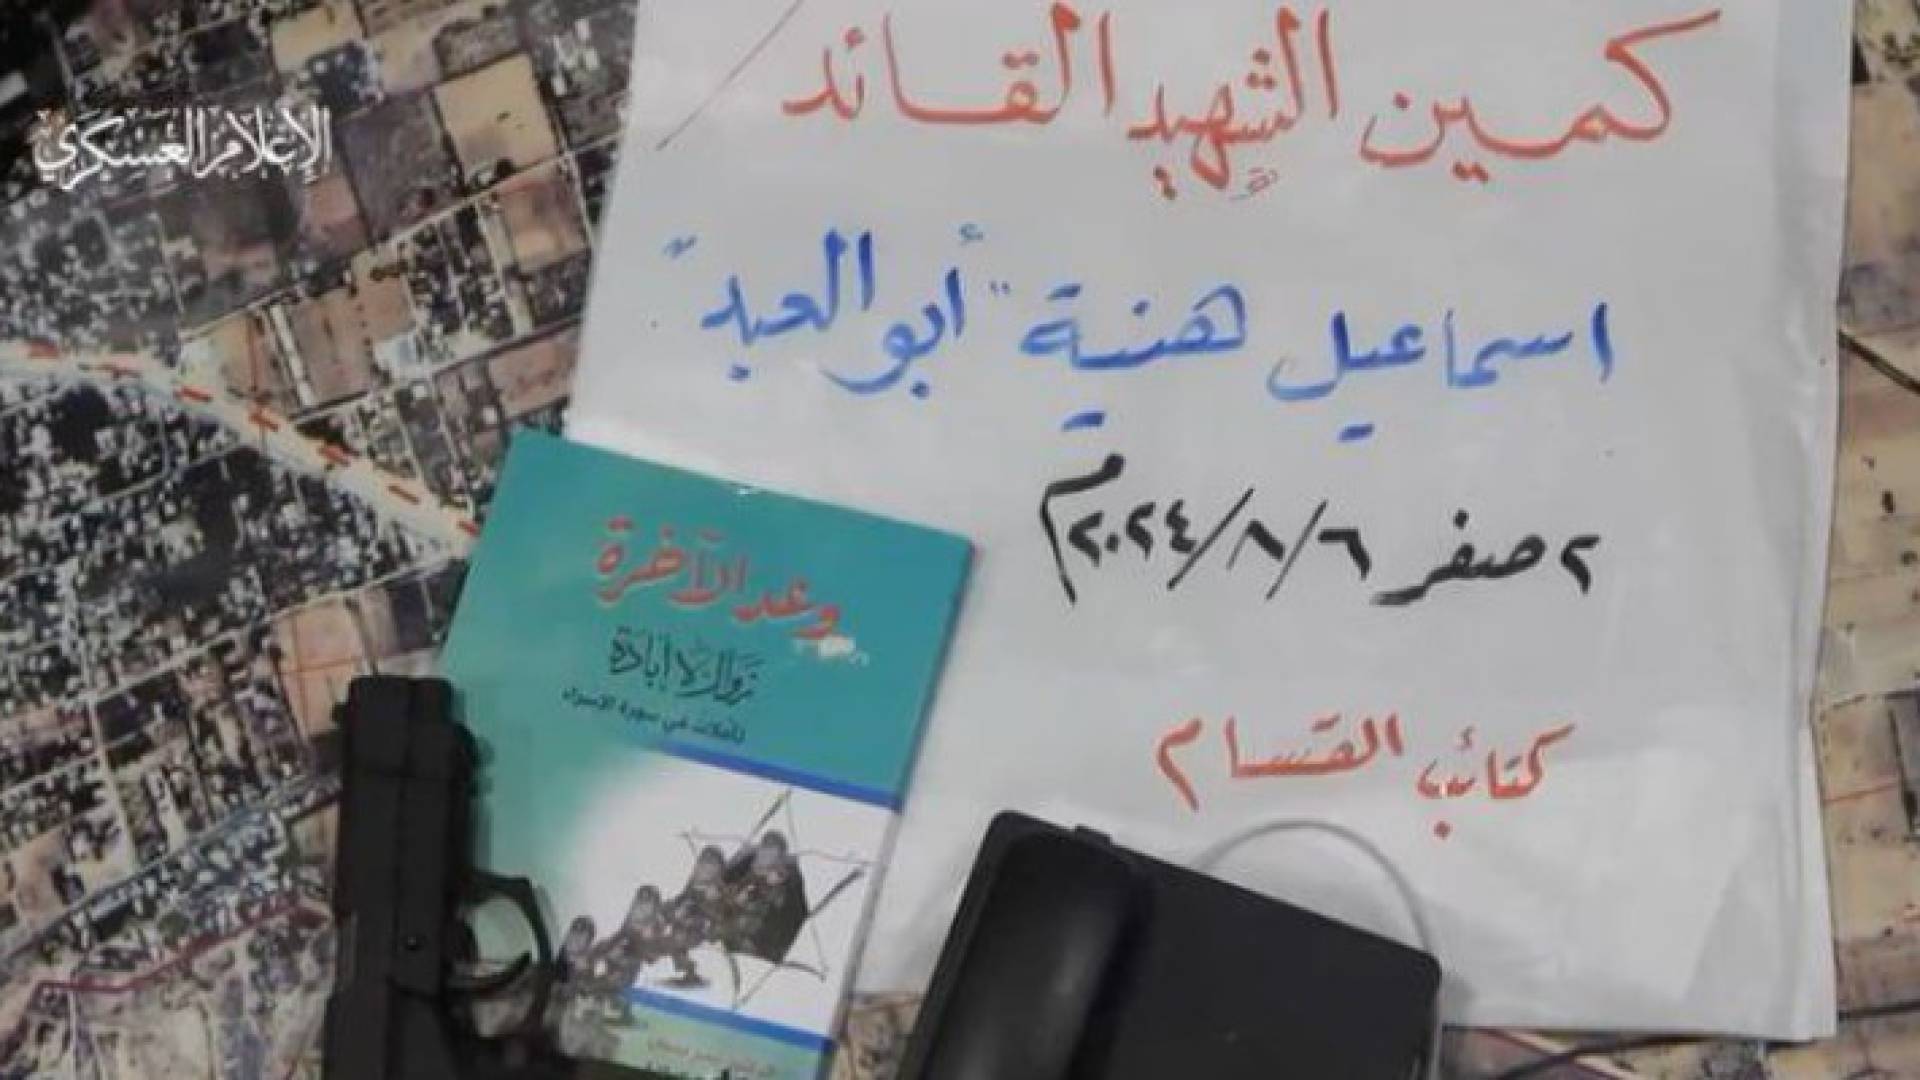 الإعلام العسكري
كمين الشهيد القائد
اسماعيل هنية "أبو العبد"
٢ صفر ٢٠٢٤/٨/٦م
كتائب القسام
وعد الآخرة
زوال لا إبادة
تأملات في سورة الإسراء